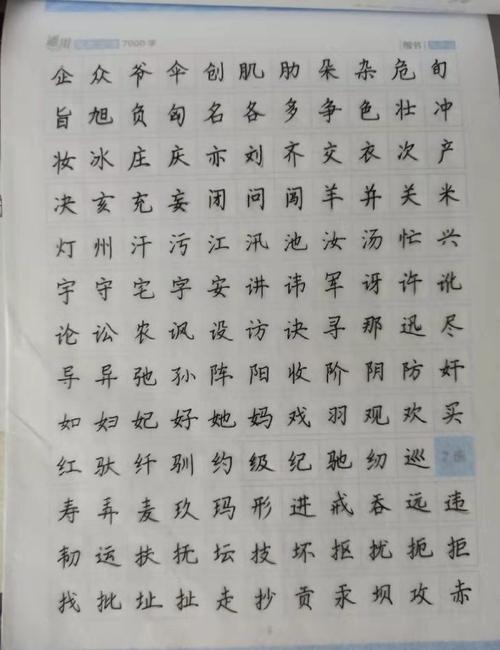 通用 7000字 楷书
企众爷伞创肌肋朵杂危旬
旨旭负匈名各多争色壮冲
妆冰庄庆亦刘齐交衣次产
决亥充妄闭问闯羊并关米
灯州汗污江汛池汝汤忙兴
宇守宅字安讲讳军讶许讹
论讼农讽设访诀寻那迅尽
导异弛孙阵阳收阶阴防奸
如妇妃好她妈戏羽观欢买
红驮纤驯约级纪驰纫巡 7画
寿弄麦玖玛形进戒吞远违
韧运扶抚坛技坏抠扰扼拒
找批址扯走抄贡汞坝攻赤